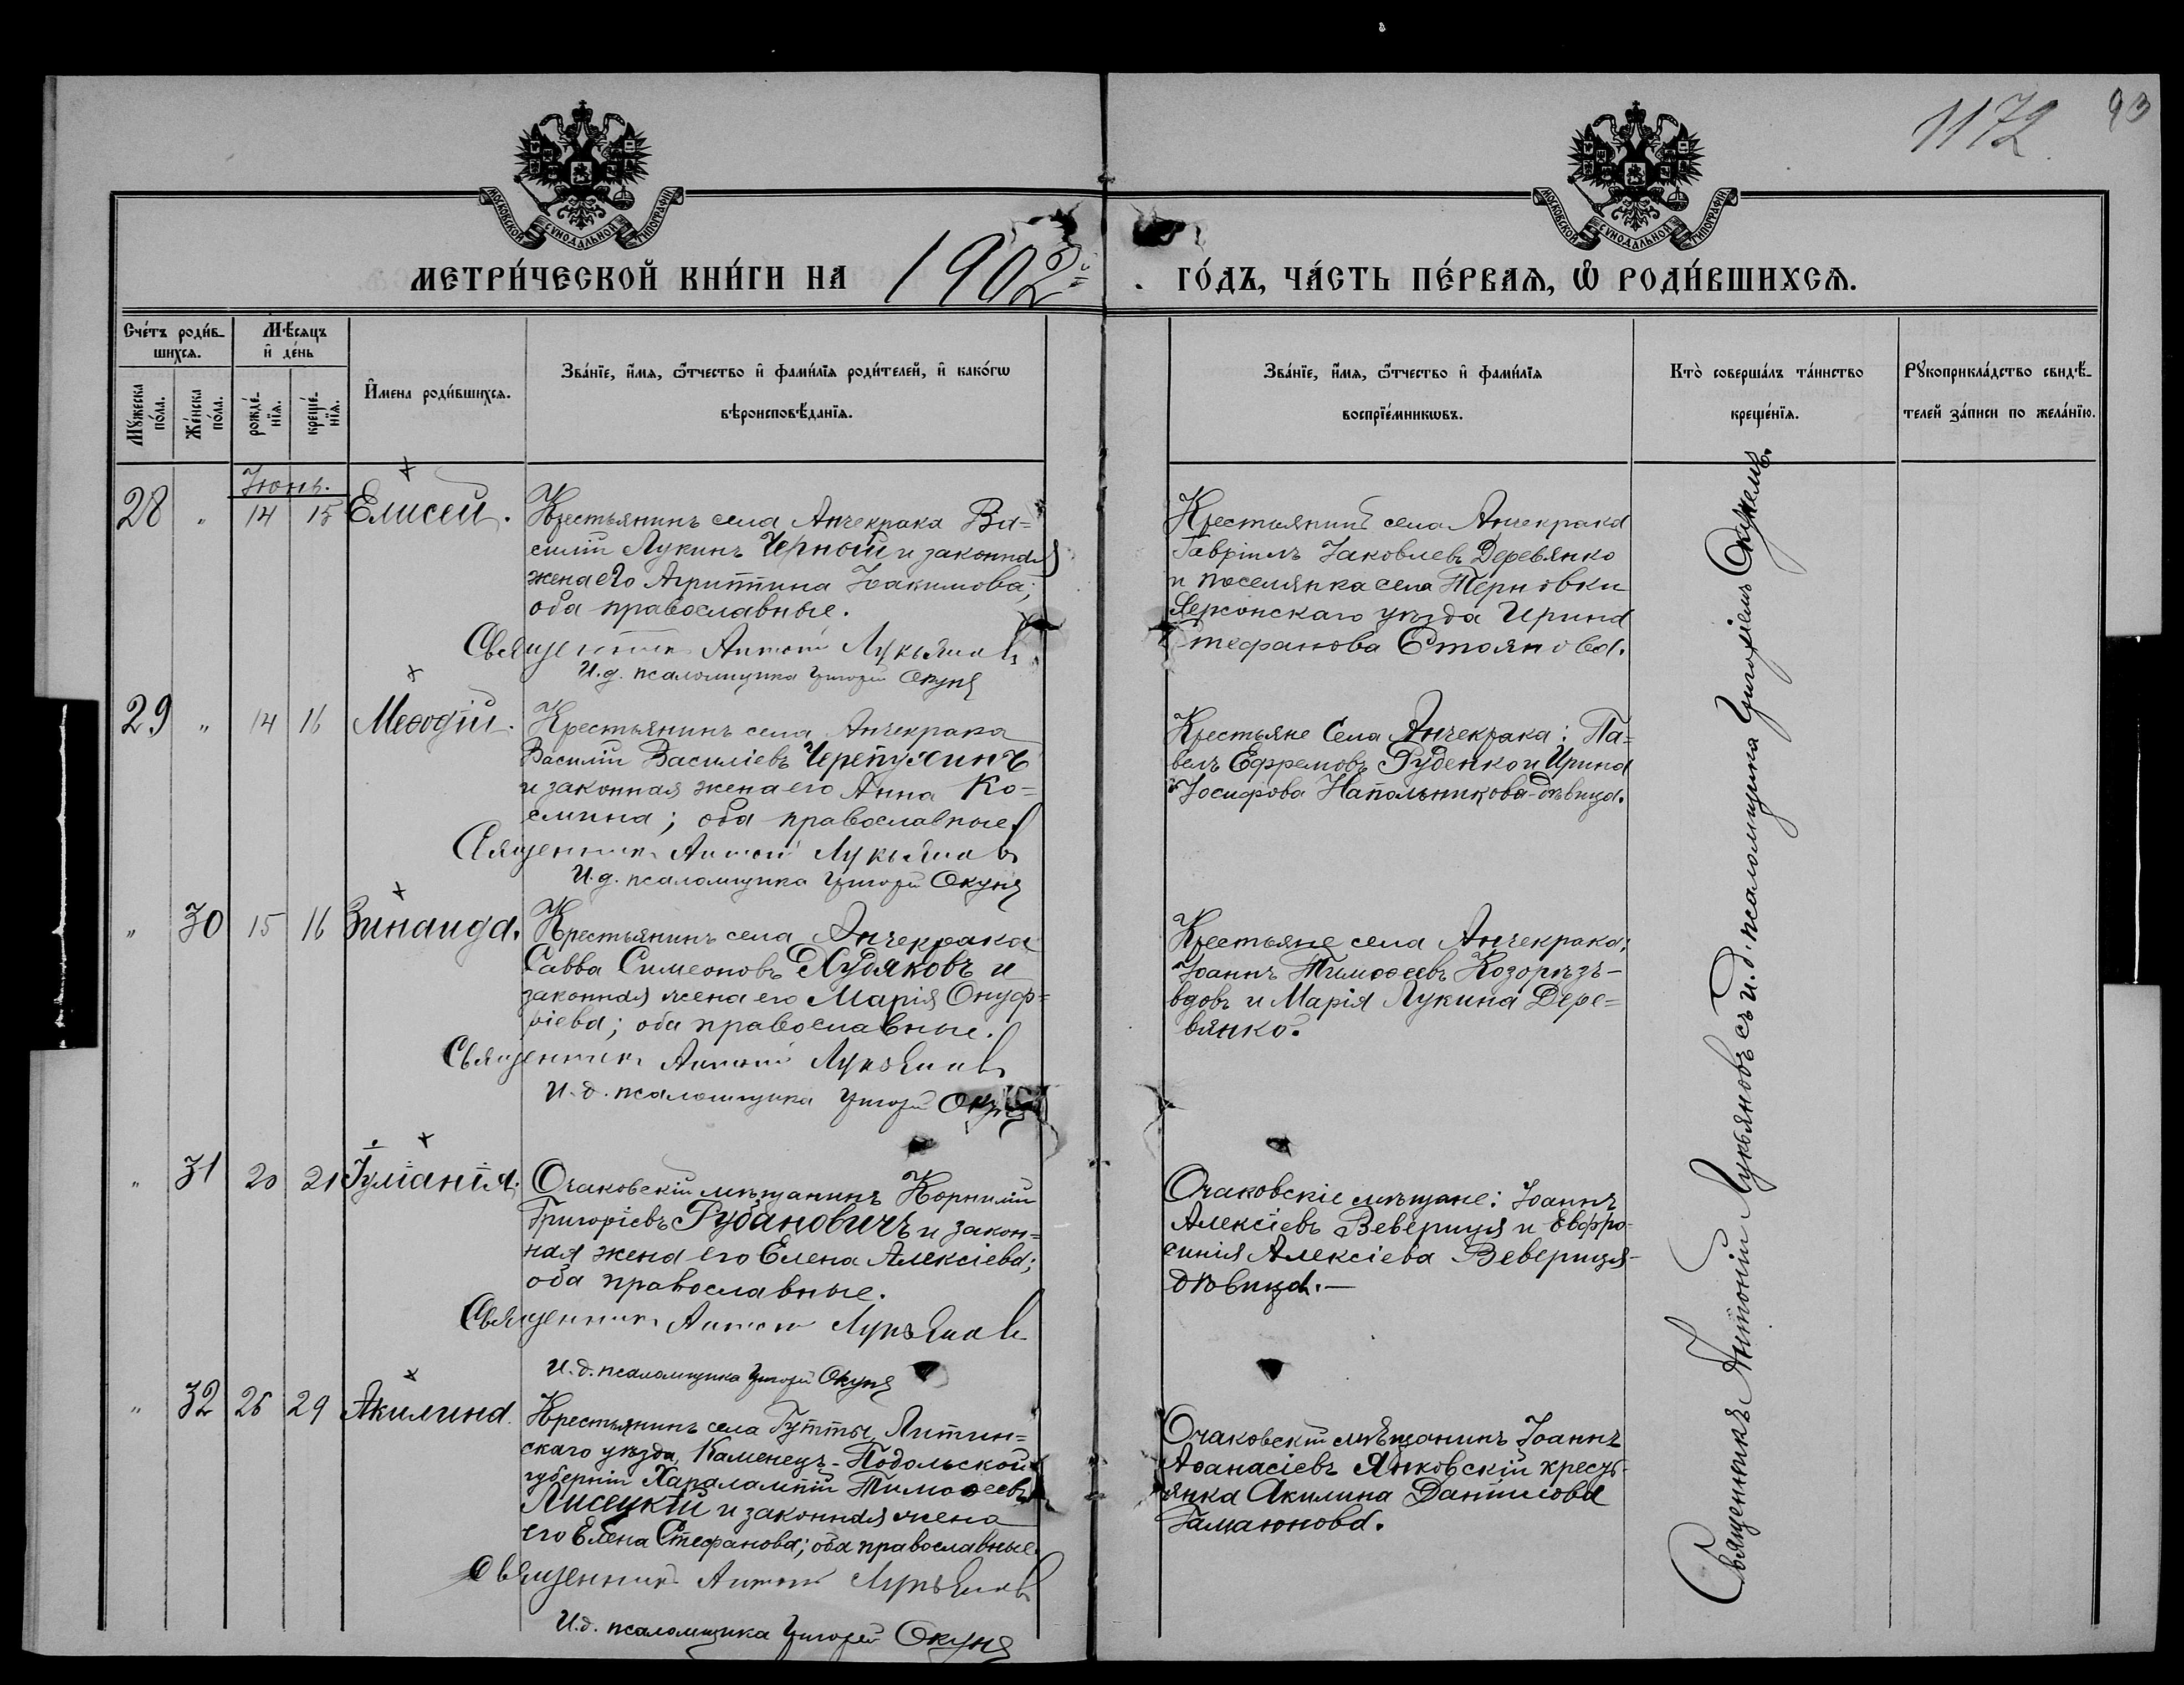 1172
93
МОСКОВСКОЙ СѴНОДАЛЬНОЙ ТИПОГРАФІИ
МОСКОВСКОЙ СѴНОДАЛЬНОЙ ТИПОГРАФІИ
МЕТРИ́ЧЕСКОЙ КНИ́ГИ НА 1902й ГО́ДЪ, ЧА́СТЬ ПЕ́РВАѦ, Ѽ РОДИ́ВШИХСѦ.
Сче́тъ роди́в-
шихсѧ.
Мꙋ́жеска по́ла.
Же́нска по́ла.
Мѣ́сяцъ
и҆ де́нь
рожде́-
нїѧ.
креще́-
нїѧ.
И҆мена роди́вшихсѧ.
Зва́нїе, и҆́мѧ, ѻ҆́тчество и҆ фами́лїѧ роди́телей, и҆ како́гѡ
вѣроисповѣ́данїѧ.
Зва́нїе, и҆́мѧ, ѻ҆́тчество и҆ фами́лїѧ
воспрїе́мникѡвъ.
Кто̀ соверша́лъ та́инство
креще́нїѧ.
Рꙋкоприкла́дство свидѣ́-
телей за́писи по жела́нїю.
Іюнь.
28 " 14 15 Елисей.
Крестьянинъ села Анчекрака Ва=
силій Лукинъ Черный и законная
жена его Агриппина Іоакимова;
оба православные.
Священникъ Антоній Лукьяновъ
И.д. псаломщика Григорій Окунь
Крестьянинъ села Анчекрака
Гавріилъ Іаковлевъ Деревянко
и поселянка села Терновки
Херсонскаго уѣзда Ирина
Стефанова Стоянова.
29 " 14 16 Меѳодій.
Крестьянинъ села Анчекрака
Василій Василіевъ Черепухинъ
и законная жена его Анна Ко=
смина; оба православные.
Священникъ Антоній Лукьяновъ
И.д. псаломщика Григорій Окунь
Крестьяне Села Анчекрака: Па=
велъ Ефремовъ Руденко и Ирина
Іосифова Напольникова-дѣвица.
" 30 15 16 Зинаида.
Крестьянинъ села Анчекрака
Савва Симеоновъ Худяковъ и
законная жена его Марія Онуф=
ріева; оба православные.
Священникъ Антоній Лукьяновъ
И.д. псаломщика Григорій Окунь
Крестьяне села Анчекрака:
Іоаннъ Тимоѳеевъ Козорѣзъ-
вдовъ и Марія Лукина Дере=
вянко.
" 31 20 21 Іуліанія.
Очаковскій мѣщанинъ Корнилій
Григоріевъ Рубановичъ и закон=
ная жена его Елена Алексіева;
оба православные.
Священникъ Антоній Лукьяновъ
И.д. псаломщика Григорій Окунь
Очаковскіе мѣщане: Іоаннъ
Алексіевъ Веверица и Евфро=
синія Алексіева Веверица-
дѣвица.—
" 32 26 29 Акилина.
Крестьянинъ села Гутты, Литин=
скаго уѣзда, Каменецъ-Подольской
губерніи Харалампій Тимоѳеевъ
Лисецкій и законная жена
его Елена Стефанова; оба православные.
Священникъ Антоній Лукьяновъ
И.д. псаломщика Григорій Окунь
Очаковскій мѣщанинъ Іоаннъ
Аѳанасіевъ Янковскій кресть-
янка Акилина Даніилова
Гамаюнова.
Священникъ Антоній Лукьяновъ съ и.д. псаломщика Григоріемъ Окунемъ.